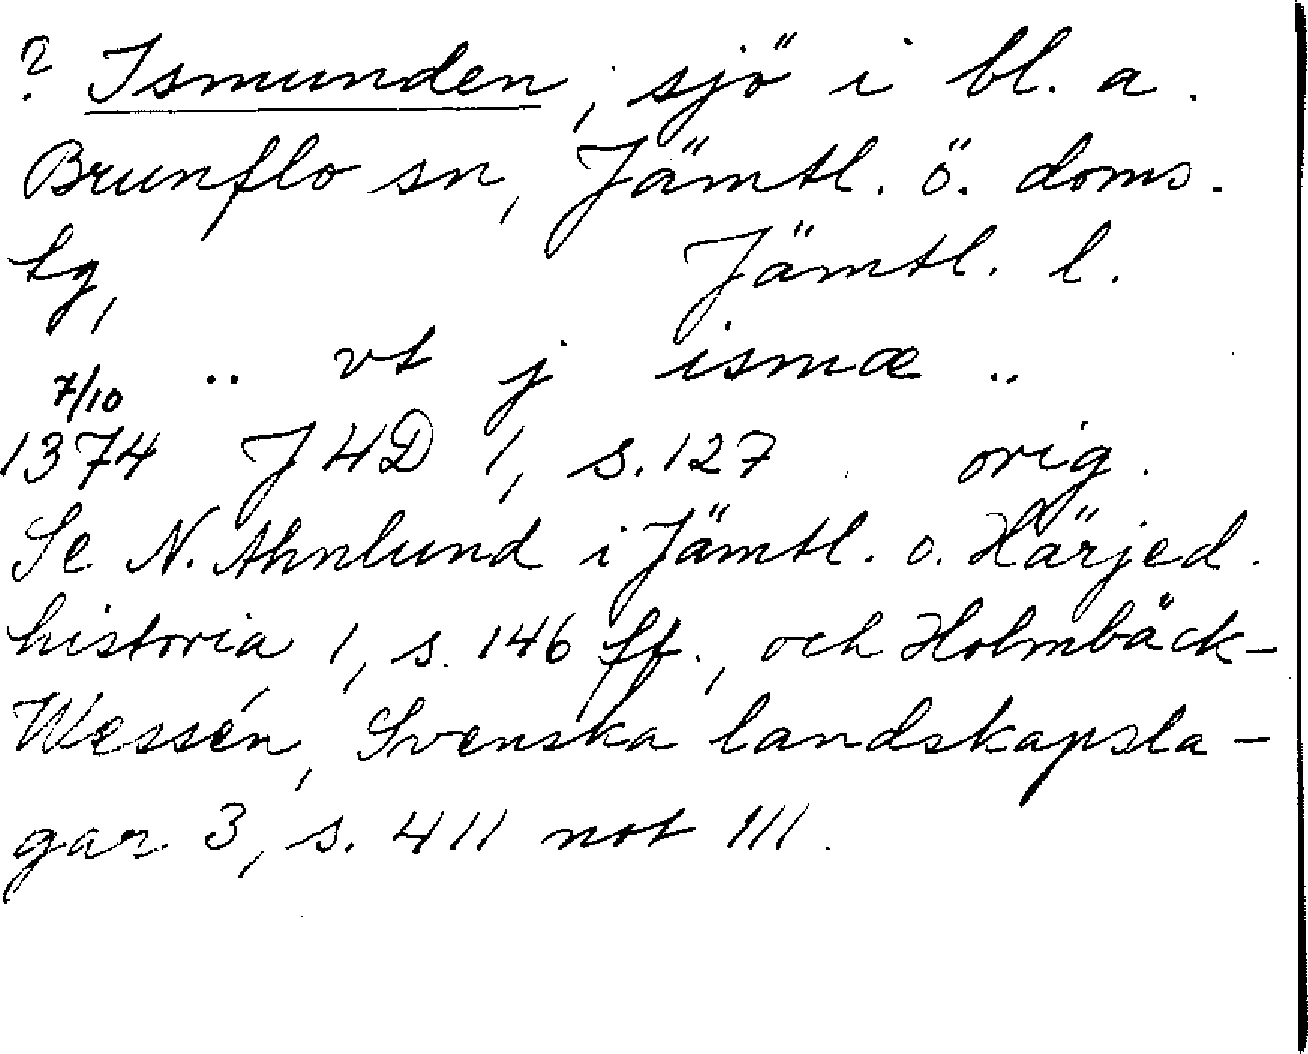 ? Ismunden, sjö i bl. a.
Brunflo sn, Jämtl. ö. doms.
tg, Jämtl. l.
.. vt j ismæ ..
7/10
1374 JHD 1, s. 127. orig.
Se N. Ahnlund i Jämtl. o. Härjed.
historia 1, s. 146 ff., och Holmbäck-
Wessén, Svenska landskapsla-
gar 3, s. 411 not 111.